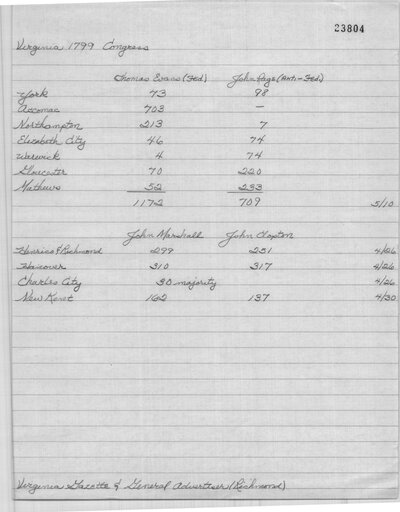 23804
Virginia 1799 Congress
Thomas Evans (Fed) John Page (Anti-Fed)
York 73 98
Accomac 703 —
Northampton 213 7
Elizabeth City 46 74
Warwick 4 74
Gloucester 70 220
Mathews 52 233
1172 709 5/10
John Marshall John Clopton
Henrico & Richmond 299 251 4/26
Hanover 310 317 4/26
Charles City 30 majority 4/26
New Kent 162 137 4/30
Virginia Gazette & General Advertiser (Richmond)